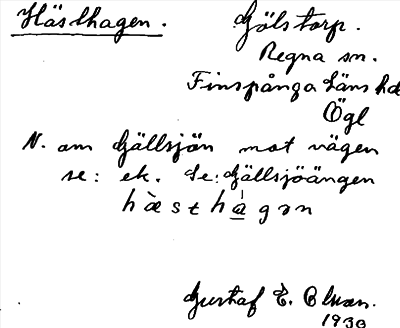 Hästhagen.
Gölstorp.
Regna sn.
Finspånga läns hd
Ögl
N. om Gällsjön mot vägen
se: ek. Se: Gällsjöängen
hàsthagən
Gustaf E.
1930